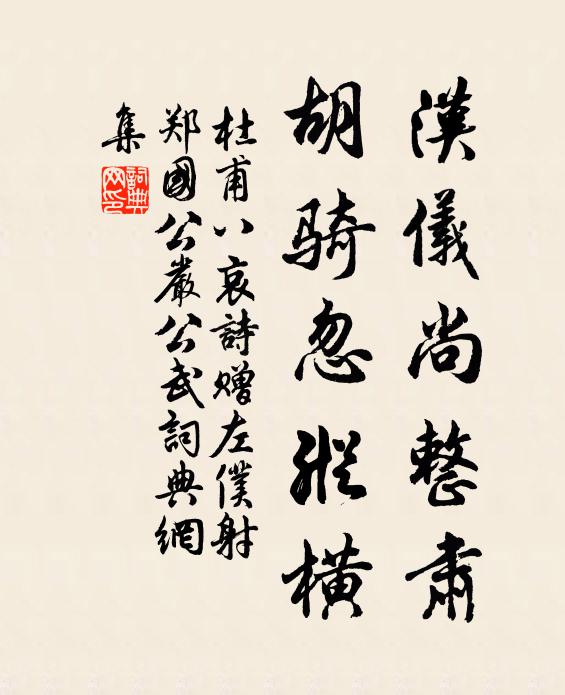 漢儀尚整肅
胡骑忽縱橫
杜甫八哀詩赠左僕射
郑國公嚴公武詞典網
集
詞典
网印